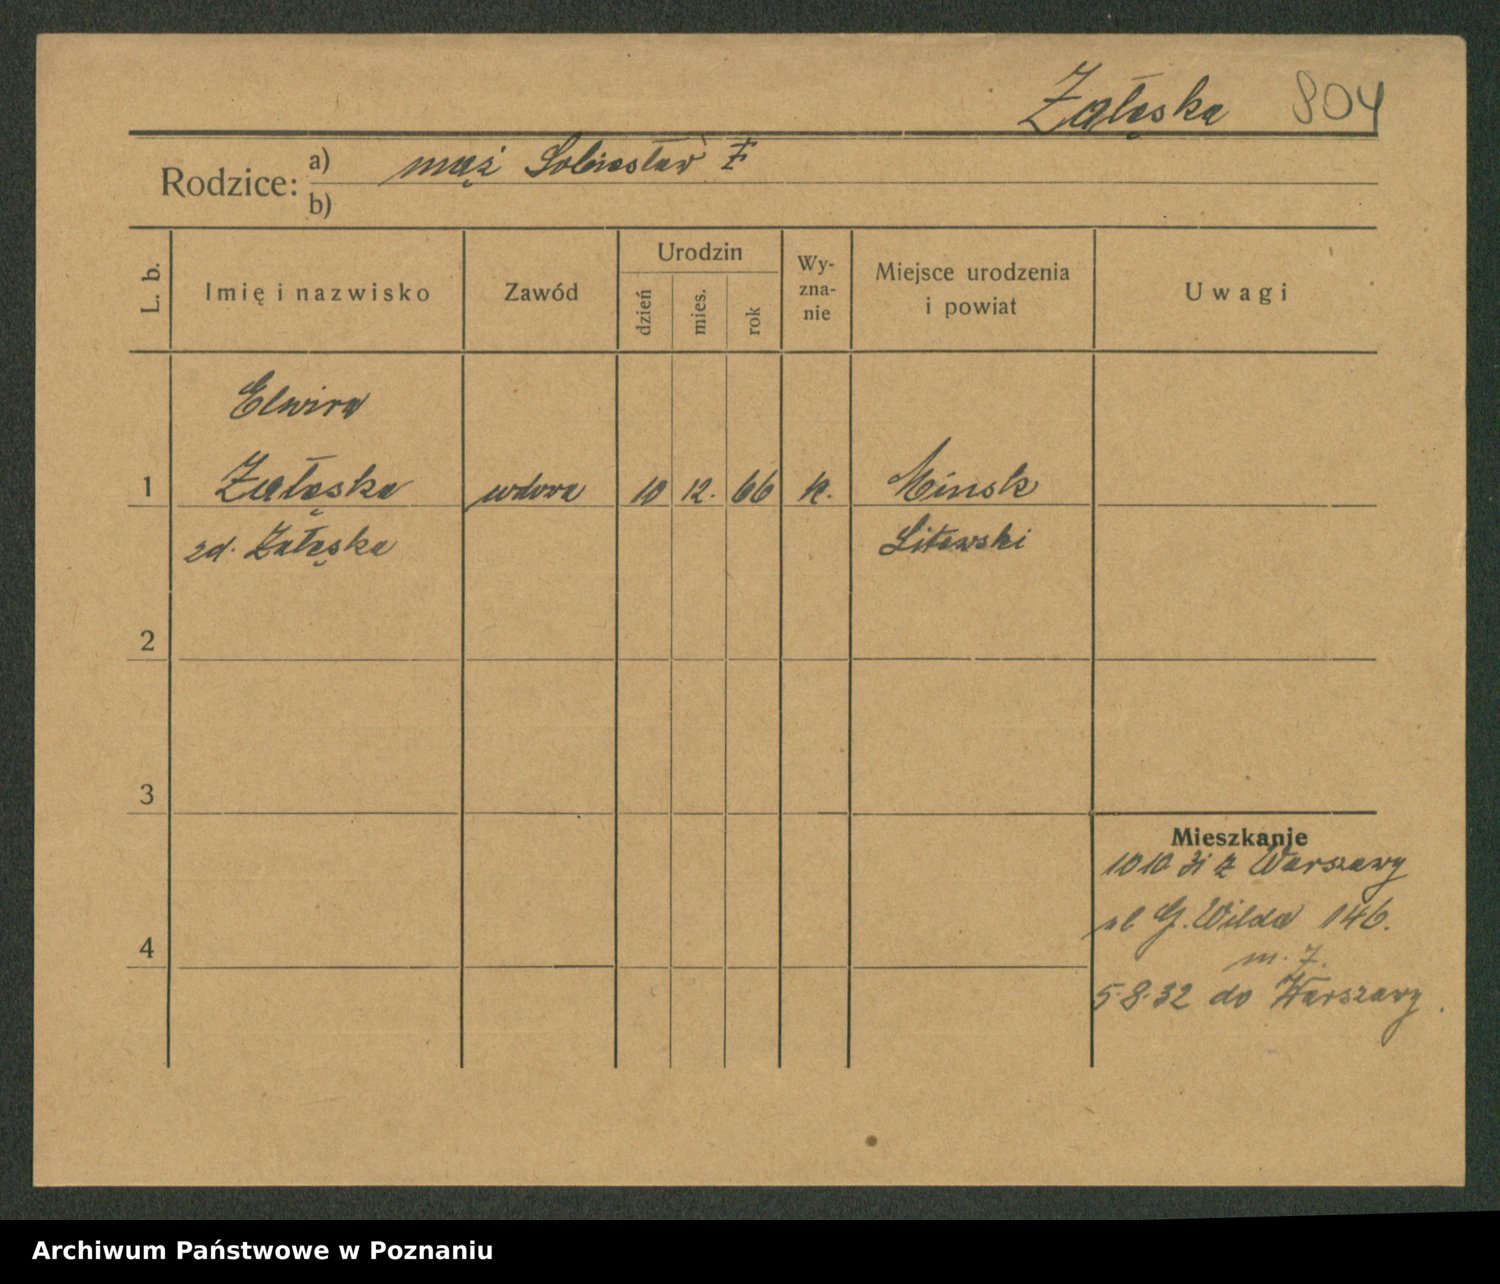 Załęska 804
Rodzice: a) mąż Sobiesław Z
b)
L. b. Imię i nazwisko Zawód Urodzin dzień mies. rok Wy-zna-nie Miejsce urodzenia i powiat Uwagi
Elwira
1 Załęska wdowa 10 12. 66 k. Mińsk
zd. Załęska Litewski
2
3
Mieszkanie
10 10. 31 z Warszawy
G. Wilda 146.
4
m. 7.
5.8.32 do Warszawy.
Archiwum Państwowe w Poznaniu